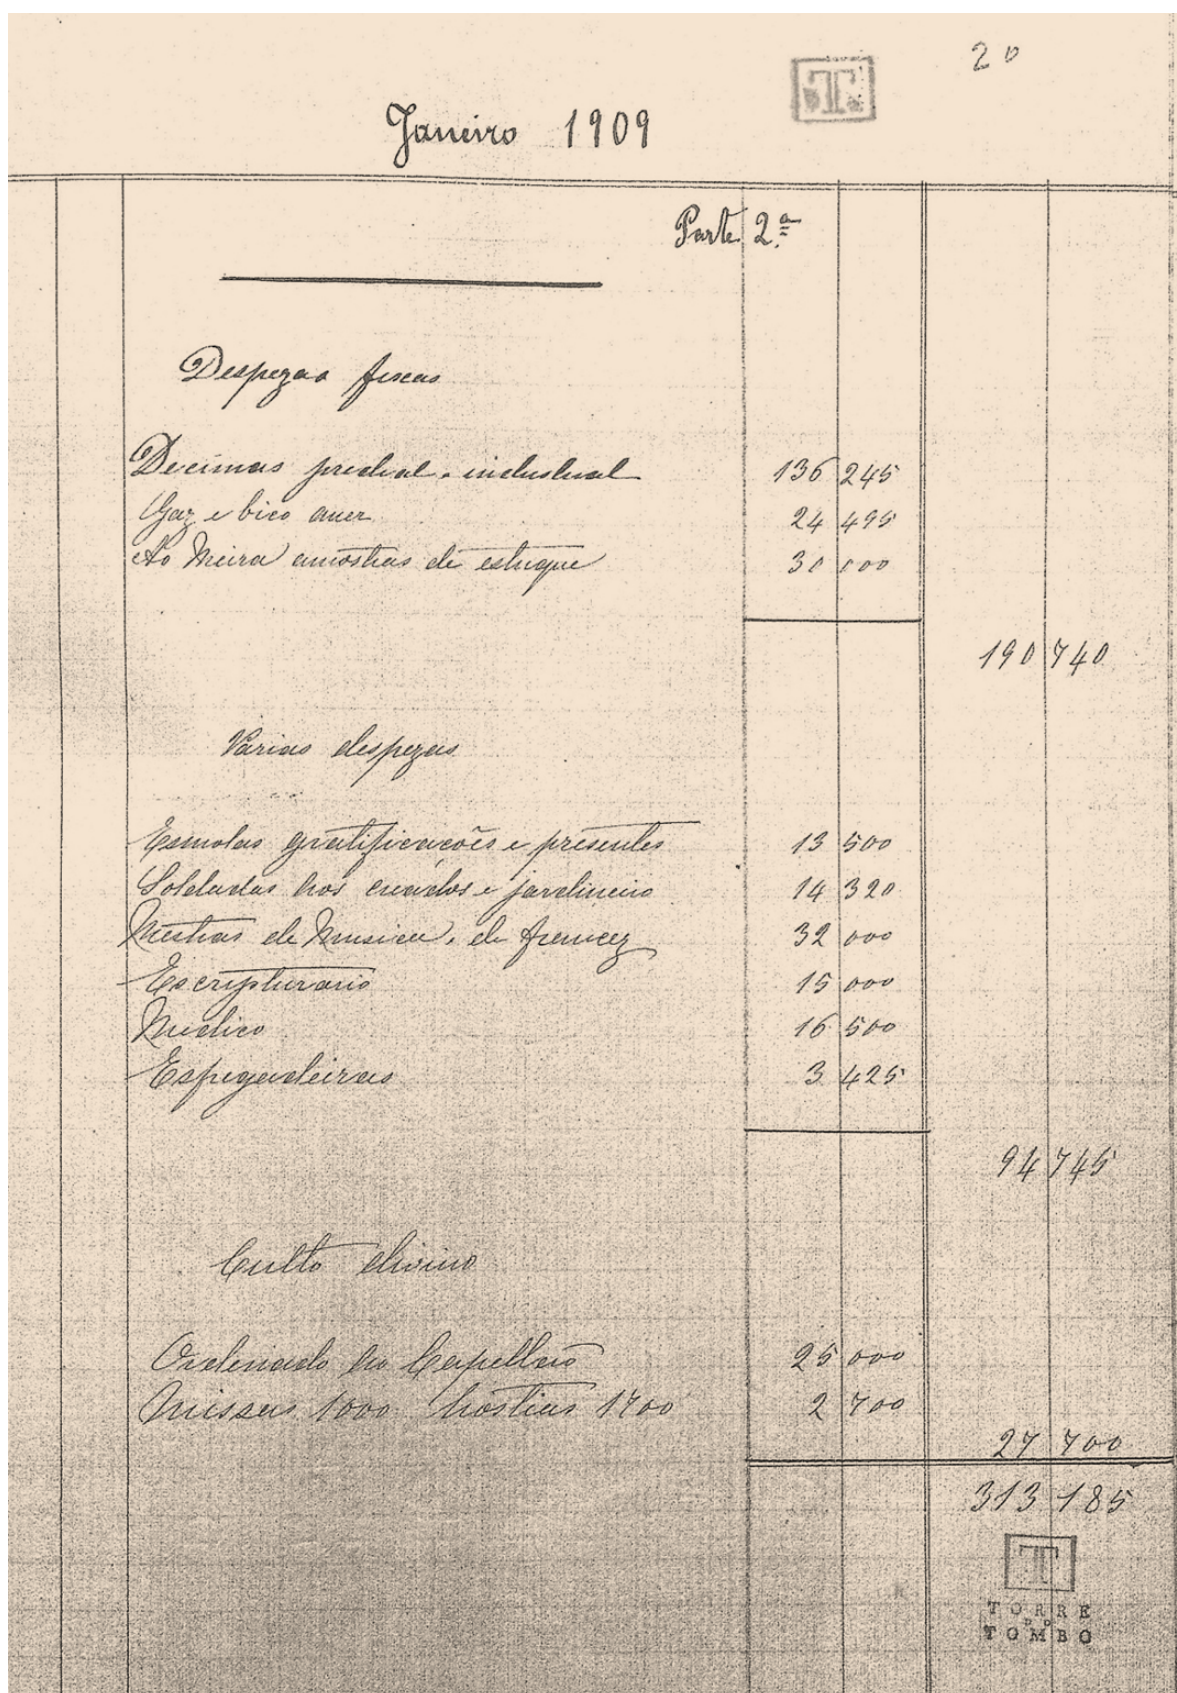 20
T
Janeiro 1909
Parte 2.ª
Despezas fiscas
Decimas predial e industrial 136 245
Gaz e bico auer 24 495
Ao Meira amostras de estuque 30 000
190 740
Varias despezas
Esmolas gratificacões e presentes 13 500
Soldadas aos creados e jardineiro 14 320
Mestras de Musica e de francez 32 000
Escripturario 15 000
Medico 16 500
3 425
94 745
Culto divino
Ordenado ao Capellão 25 000
Missas 1000 hostias 1700 2 700
27 700
313 185
T
TORRE
DO
TOMBO